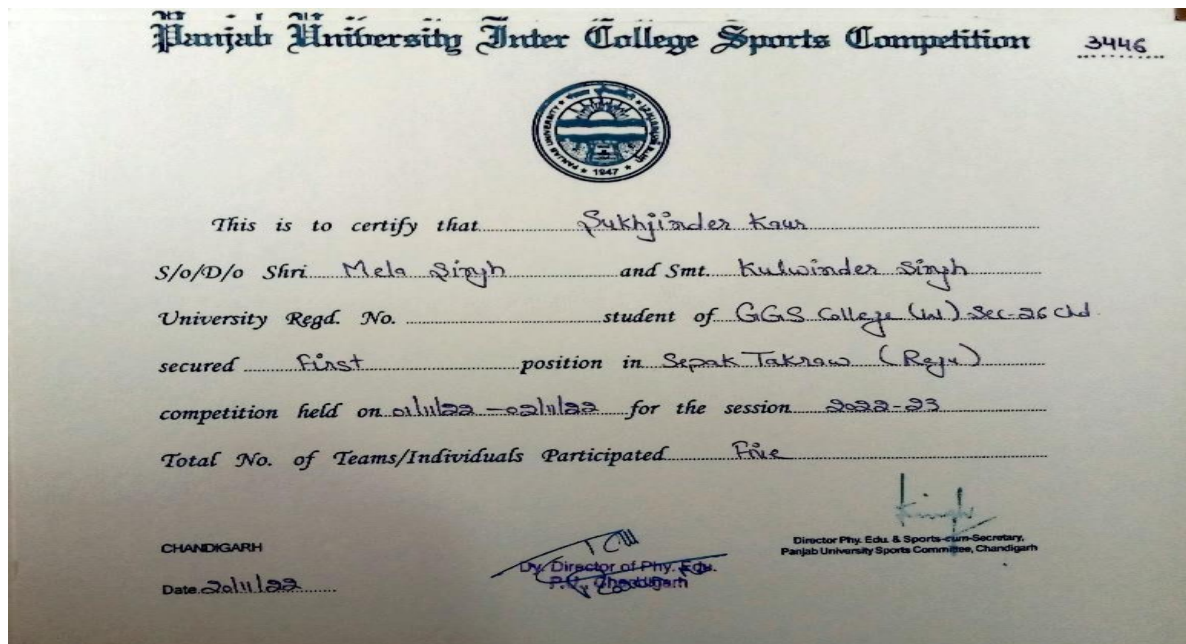 Panjab University Inter College Sports Competition
3446
PANJAB UNIVERSITY
1947
This is to certify that Sukhjinder Kaur
S/o/D/o Shri Mela Singh and Smt. Kulwinder Singh
University Regd. No. student of GGS College (W)-Sec-26 Chd
secured First position in Sepak Takraw (Regu)
competition held on 01/11/22 - 02/11/22 for the session 2022-23
Total No. of Teams/Individuals Participated Five
CHANDIGARH
Date 20/11/22
Dy. Director of Phy. Edu.
P.U., Chandigarh
Director Phy. Edu. & Sports-cum-Secretary,
Panjab University Sports Committee, Chandigarh